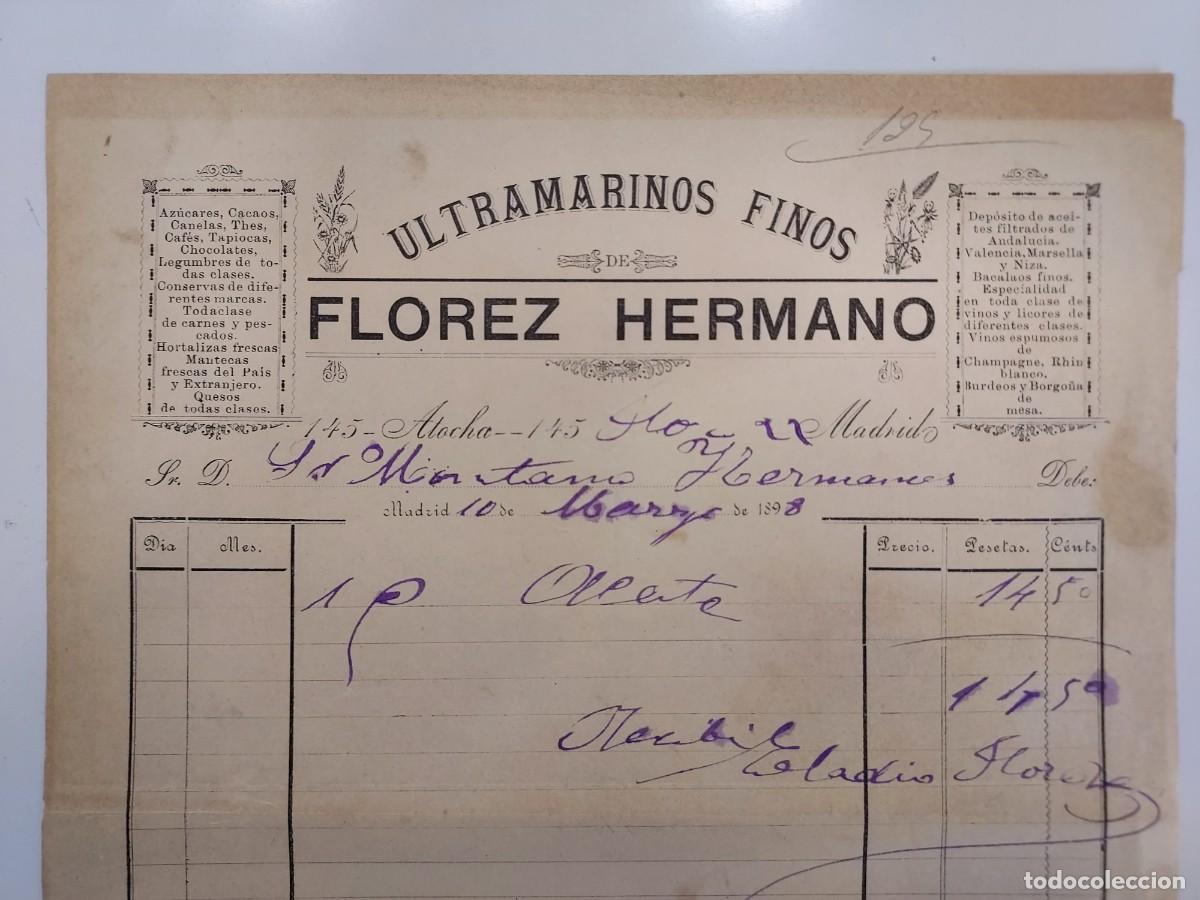 125
Azúcares, Cacaos,
Canelas, Thes,
Cafés, Tapiocas,
Chocolates,
Legumbres de to-
das clases.
Conservas de dife-
rentes marcas.
Todaclase
de carnes y pes-
cados.
Hortalizas frescas
Mantecas
frescas del País
y Extranjero.
Quesos
de todas clases.
ULTRAMARINOS FINOS
DE
FLOREZ HERMANO
Depósito de acei-
tes filtrados de
Andalucía.
Valencia, Marsella
y Niza.
Bacalaos finos.
Especialidad
en toda clase de
vinos y licores de
diferentes clases.
Vinos espumosos
de
Champagne, Rhin
blanco.
Burdeos y Borgoña
de
mesa.
145 - Atocha - - 145 Madrid
Sr. D. Montano y Hermanos Debe:
Madrid 10 de Marzo de 1898
Dia Mes. Precio. Pesetas. Cénts
1 14 50
14 50
Recibí
Eladio Florez
todocoleccion